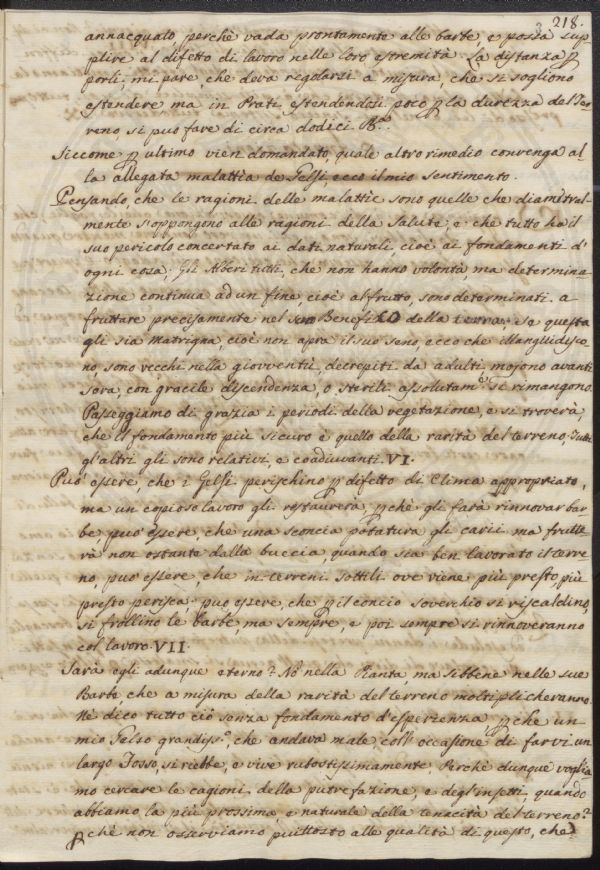 218.
annacquato perchè vada prontamente alle barbe, e possa sup-
plire al difetto di lavoro nelle loro estremità. La distanza ꝑ
porli, mi pare, che deva regolarsi a misura, che si sogliono
estendere ma in Prati estendendosi poco ꝑ la durezza del Ter-
reno si può fare di circa dodici Bᵃ.
Siccome ꝑ ultimo vien domandato, quale altro rimedio convenga al-
la allegata malattia de Gelsi, ecco il mio sentimento.
Pensando, che le ragioni delle malattie sono quelle che diametral-
mente s'oppongono alle ragioni della Salute, e che tutto ha il
suo pericolo concertato ai dati naturali, cioè ai fondamenti d'
ogni cosa; Gli Alberi tutti, che non hanno volontà ma determina-
zione continua ad un fine, cioè al frutto, sono determinati a
fruttare precisamente nel Benefizio della terra. Se questa
gli sia Matrigna, cioè non apra il suo seno, ecco che illanguidisco-
no, sono vecchi nella gioventù, decrepiti da adulti, mojono avanti
sera, con gracile discendenza, o sterili assolutamᵉ. si rimangono.
Passeggiamo di grazia i periodi della vegetazione, e si troverà,
che il fondamento più sicuro è quello della rarità del terreno, Tutti
gl'altri gli sono relativi, e coadiuvanti. VI.
Può essere, che i Gelsi perischino ꝑ difetto di Clima appropriato,
ma un copioso lavoro gli restaurerà, ꝑchè gli farà rinnovar bar-
be, può essere, che una sconcia potatura gli carii ma frutte-
rà non ostante dalla buccia, quando sia ben lavorato il terre-
no, può essere, che in terreni sottili ove viene più presto, più
presto perisca; può essere, che ꝑ il concio soverchio si riscaldino,
si frollino le barbe, ma sempre, e poi sempre si rinnoveranno
col lavoro. VII.
Sarà egli adunque eterno? Nò nella Pianta, ma sibbene nelle sue
Barbe, che a misura della rarità del terreno moltiplicheranno.
Nè dico tutto ciò senza fondamento d'esperienza ꝑ che un
mio Gelso grandisᵒ., che andava male, coll' occasione di farvi un
largo Fosso, si riebbe, e vive robustissimamente. Perchè dunque voglia-
mo cercare le cagioni della putrefazione, e degl'insetti, quando
abbiamo la più prossima, e naturale della tenacità del terreno?
ꝑchè non osserviamo piuttosto alle qualità di questo, che